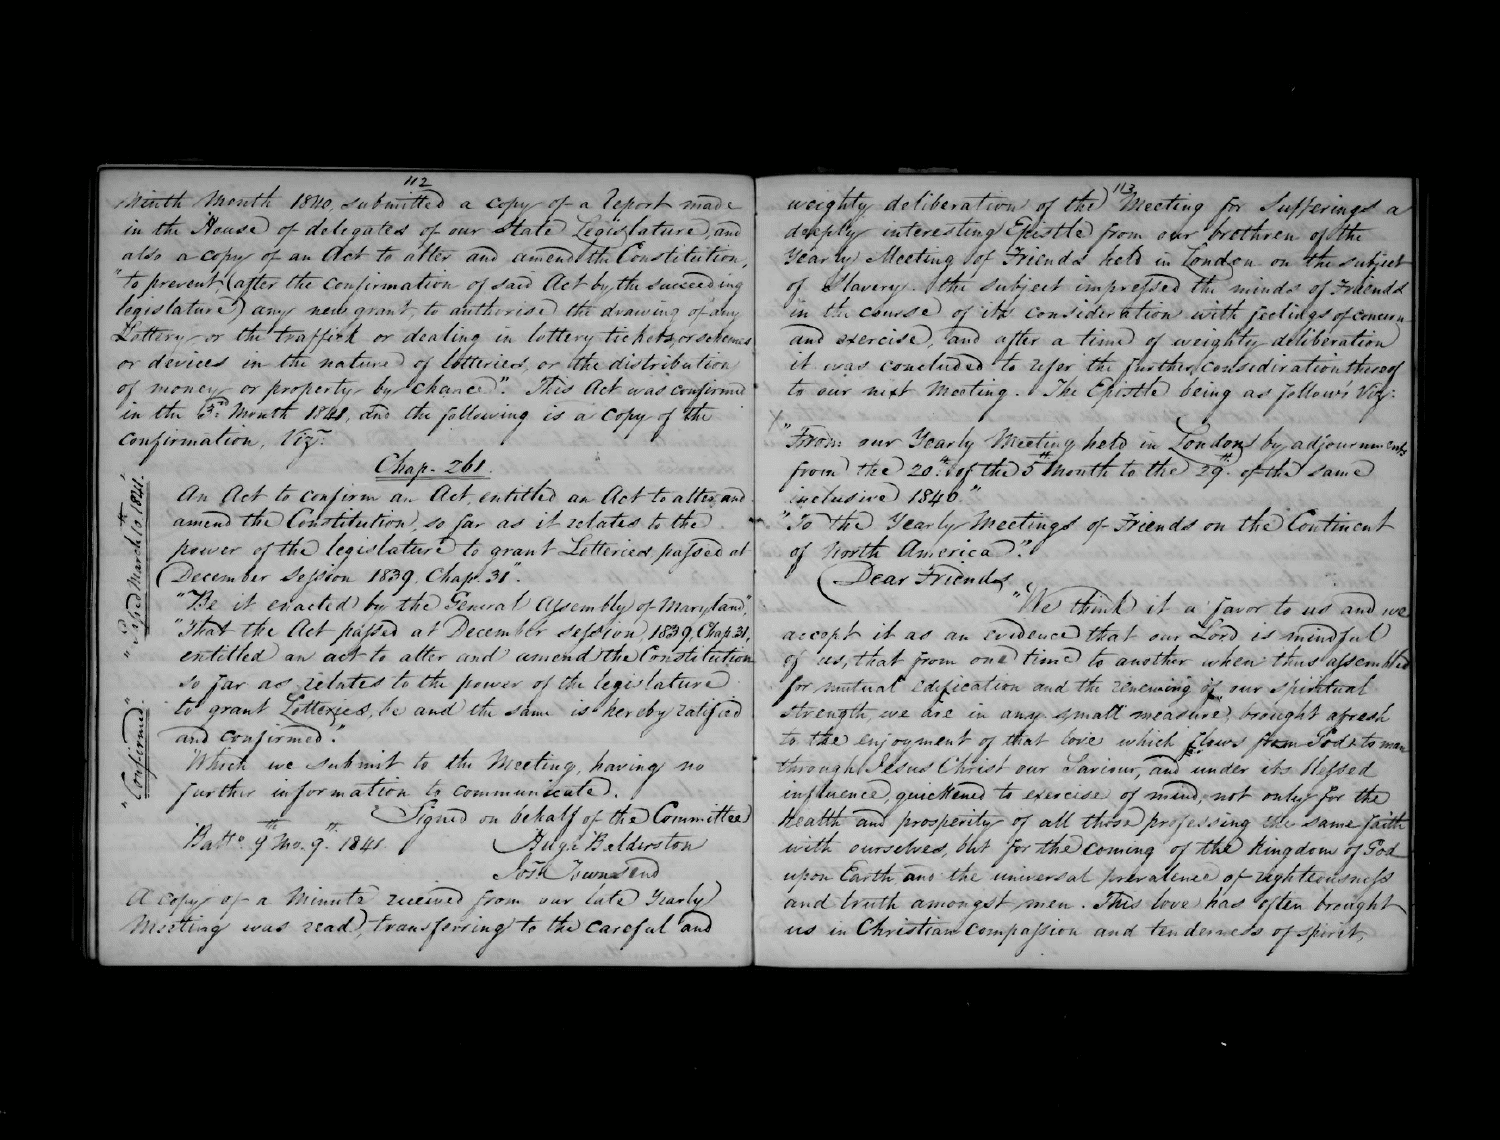 112
Ninth Month 1840, submitted a copy of a Report made
in the House of delegates of our State Legislature, and
also a copy of an Act to alter and amend the Constitution,
"to prevent (after the confirmation of said Act by the succeeding
legislature) any new grant, to authorise the drawing of any
Lottery or the traffick or dealing in lottery tickets, or schemes
or devices in the nature of lotteries, or the distribution
of money or property by chance". This Act was confirmed
in the 3d. Month 1841, and the following is a copy of the
confirmation, Vizt:
Chap. 261.
An Act to confirm an Act, entitled an Act to alter and
amend the Constitution, so far as it relates to the
power of the legislature to grant Lotteries passed at
December Session 1839. Chap. 31".
"Be it enacted by the General Assembly of Maryland",
"That the Act passed at December session, 1839, Chap. 31,
entitled an act to alter and amend the Constitution
so far as relates to the power of the legislature
to grant Lotteries, be and the same is hereby ratified
and confirmed".
"Confirmed" "Passed March 10th 1841."
"Which we submit to the Meeting, having no
further information to communicate.
Signed on behalf of the Committee
Balto. 9th mo. 9th. 1841 Hugh Balderston
Josh Townsend
A copy of a Minute received from our late Yearly
Meeting was read, transferring to the careful and
113
weighty deliberation of the Meeting for Sufferings a
deeply interesting Epistle from our brethren of the
Yearly Meeting of Friends held in London on the subject
of Slavery. the subject impressed the minds of Friends
in the course of its consideration with feelings of concern
and exercise, and after a time of weighty deliberation
it was concluded to refer the further consideration thereof
to our next Meeting. The Epistle being as follows Viz:
X
"From our Yearly Meeting held in London by adjournments
from the 20th of the 5th month to the 29th. of the same
inclusive 1840."
"To the Yearly Meetings of Friends on the Continent
of North America".
Dear Friends,
"We think it a favor to us and we
accept it as an evidence that our Lord is mindful
of us, that from one time to another when thus assembled
for mutual edification and the renewing of our spiritual
strength, we are in any small measure, brought afresh
to the enjoyment of that love which flows from God to man
through Jesus Christ our Saviour, and under its blessed
influence, quickened to exercise of mind, not only for the
health and prosperity of all those professing the same faith
with ourselves, but for the coming of the kingdom of God
upon Earth and the universal prevalence of righteousness
and truth amongst men. This love has often brought
us in Christian compassion and tenderness of spirit,